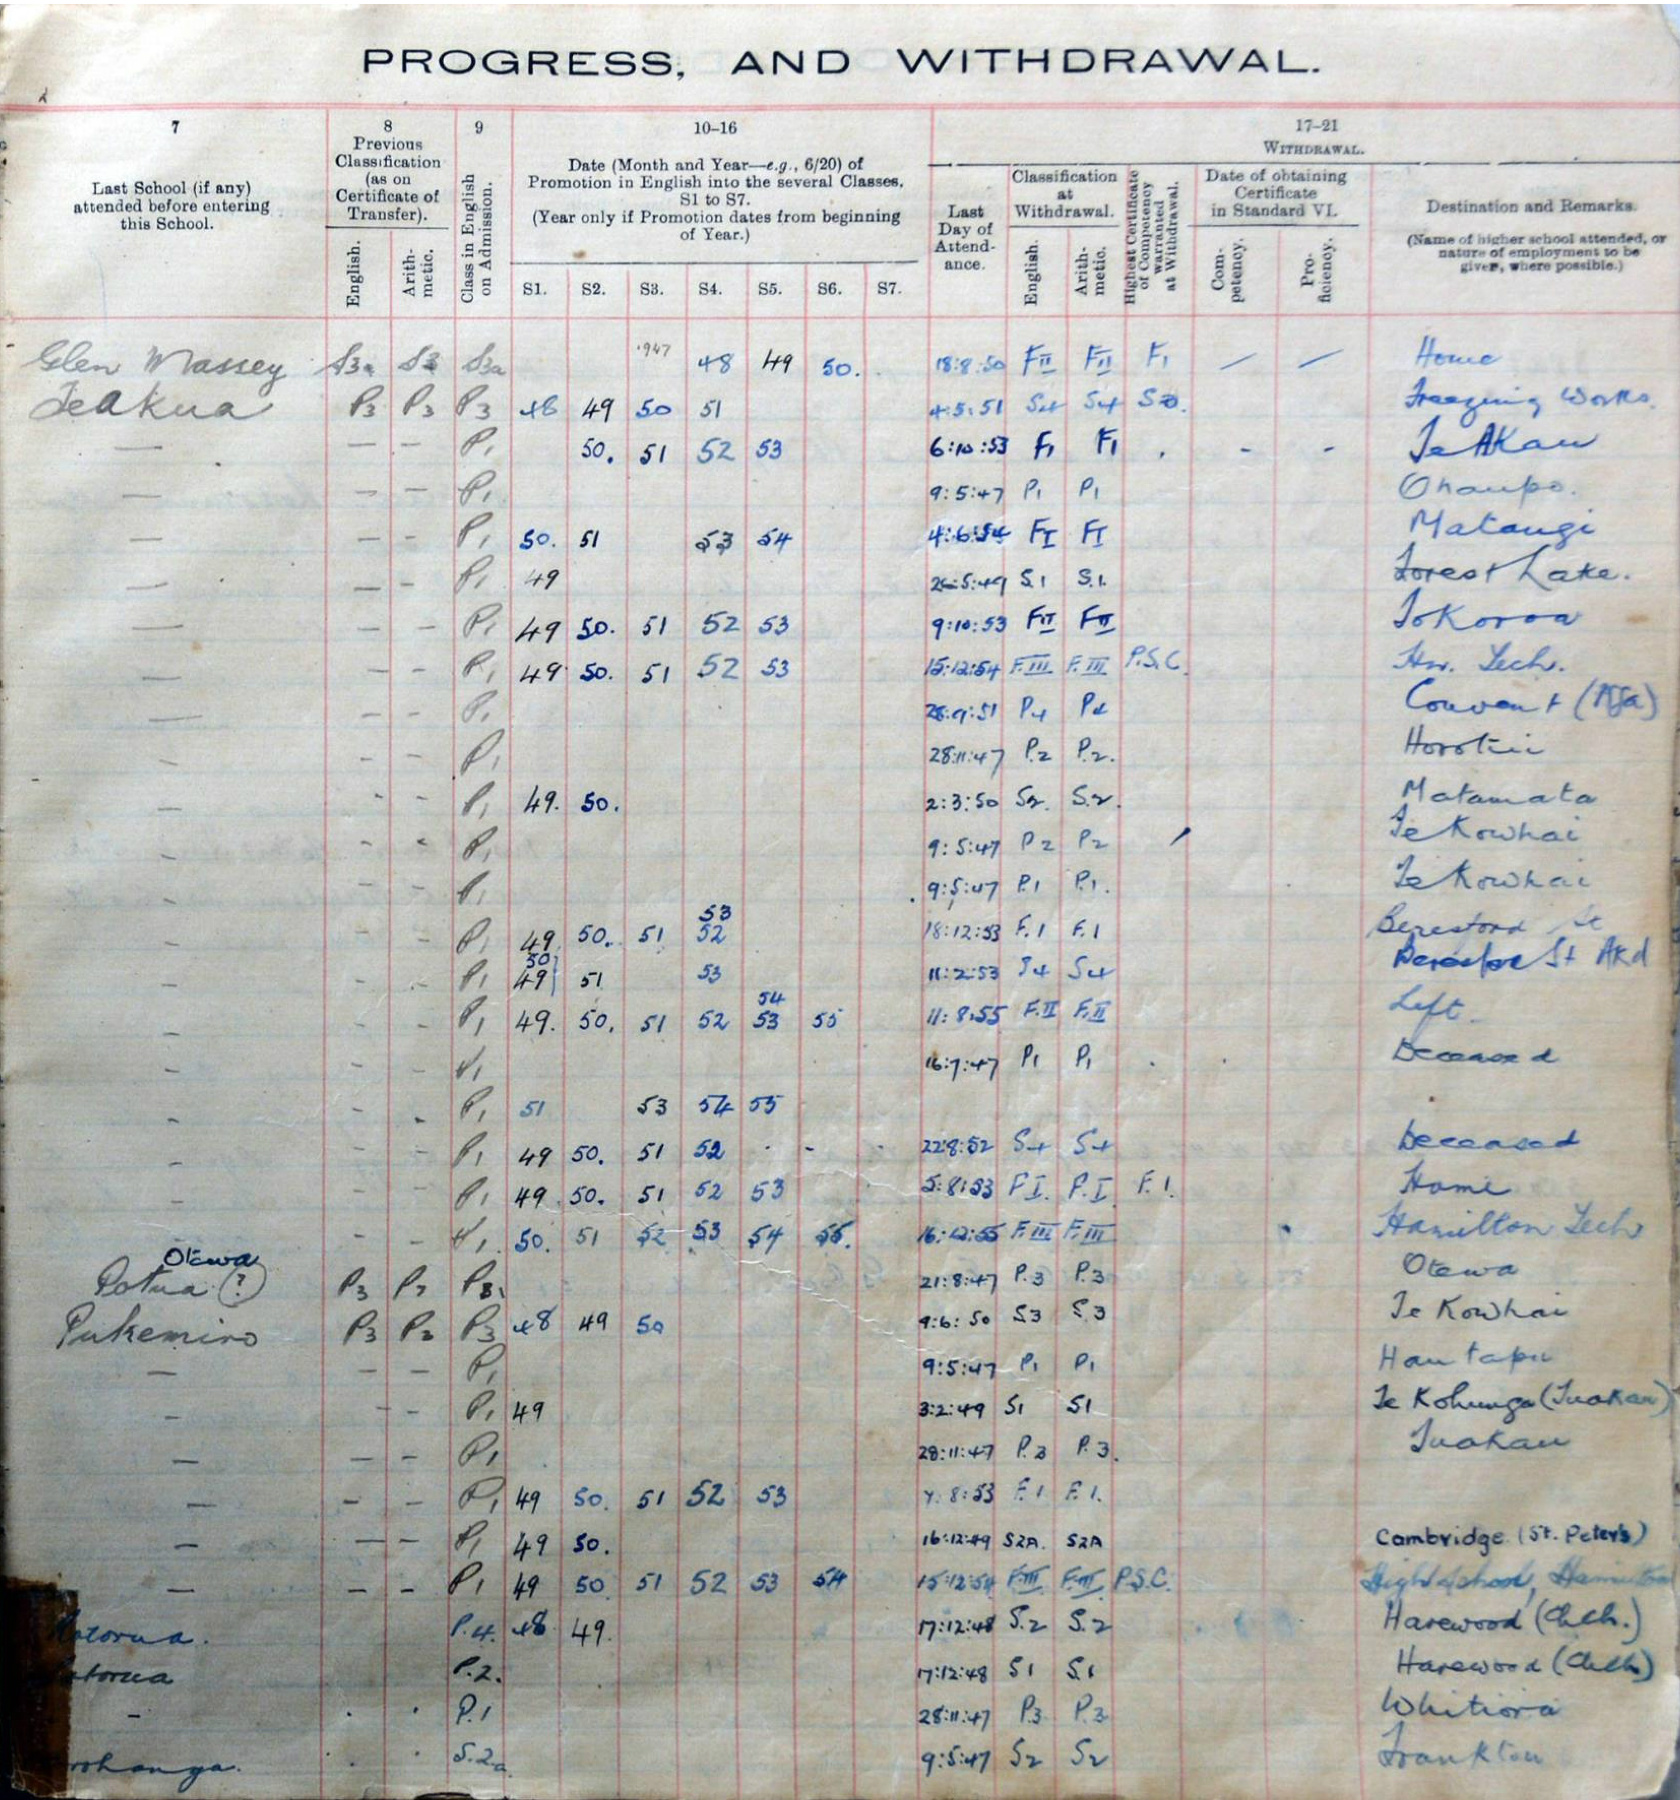 PROGRESS, AND WITHDRAWAL.
7 8 9 10–16 17–21
Last School (if any) attended before entering this School.
Previous Classification (as on Certificate of Transfer).
English. Arith-metic.
Class in English on Admission.
Date (Month and Year—e.g., 6/20) of Promotion in English into the several Classes, S1 to S7.
(Year only if Promotion dates from beginning of Year.)
S1. S2. S3. S4. S5. S6. S7.
WITHDRAWAL.
Last Day of Attend-ance.
Classification at Withdrawal.
English. Arith-metic.
Highest Certificate of Competency warranted at Withdrawal.
Date of obtaining Certificate in Standard VI.
Com-petency. Pro-ficiency.
Destination and Remarks.
(Name of higher school attended, or nature of employment to be given, where possible.)
Glen Massey S3a S3 S3a 1947 48 49 50. 18:8:50 FII FII F1 — — Home
TeAkua P3 P3 P3 48 49 50 51 4:5:51 S4 S4 Freezing Works.
— — — P1 50. 51 52 53 6:10:53 F1 F1 - - Te Akau
— — — P1 9:5:47 P1 P1 Ohaupo.
— — — P1 50. 51 53 54 4:6:54 FI FI Matangi
— — — P1 49 :5:49 S.1 S.1. Forest Lake.
— — — P1 49 50. 51 52 53 9:10:53 FII FII Tokoroa
— — — P1 49 50. 51 52 53 15:12:54 F.III F.III P.S.C. Hn. Tech.
— — — P1 28:9:51 P4 P4 Convent
— — — P1 28:11:47 P.2 P.2. Horotiu
— - - P1 49. 50. 2:3:50 S2. S.2. Matamata
- - - P1 9:5:47 P2 P2 Te Kowhai
- - - P1 9:5:47 P.1 P.1. Te Kowhai
53
- - - P1 49 50. 51 52 18:12:53 F.1 F.1 Beresford St
50
- - - P1 49 51 53 11:2:53 S4 S4 St Akd
54
- - - P1 49. 50. 51 52 53 55 11:8:55 F.II F.II Left
- - - P1 16:7:47 P1 P1 Deceased
- - - P1 51 53 54 55
- - - P1 49 50. 51 52 - - 22:8:52 S4 S4 Deceased
- - - P1 49 50. 51 52 53 5:8:53 F I. F.I F.1. Home
- - - P1 50. 51 52 53 54 55. 16:12:55 F.III F.III Hamilton Tech
Otewa
Potua (?) P3 P3 21:8:47 P.3 P.3 Otewa
Pukemiro P3 P3 P3 48 49 50 9:6:50 S3 S3 Te Kowhai
— — — P1 9:5:47 P1 P1 Hautapu
- - - P1 49 3:2:49 S1 S1 Te Kohunga (Tuakau)
— — — P1 28:11:47 P.3 P.3. Tuakau
— - - P1 49 50. 51 52 53 8:53 F.1 F.1.
— — — P1 49 50. 16:12:49 S2A. S2A Cambridge (St. Peter's)
— — — P1 49 50 51 52 53 54 15:12:54 F.III F.III P.S.C. High School, Hamilton
P.4. 48 49. 17:12:48 S.2 S.2 Harewood (Chch.)
P.2. 17:12:48 S1 S.1 Harewood (Chch)
- P.1 28:11:47 P.3 P.3 Whitiora
S.2a 9:5:47 S2 S2 Frankton